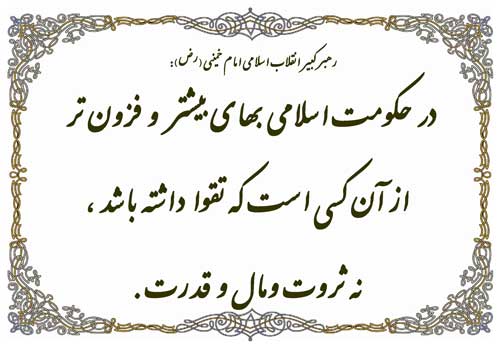 رهبر کبیر انقلاب اسلامی امام خمینی (رض):
در حکومت اسلامی بهای بیشتر و فزون تر
از آن کسی است که تقوا داشته باشد ،
نه ثروت و مال و قدرت .